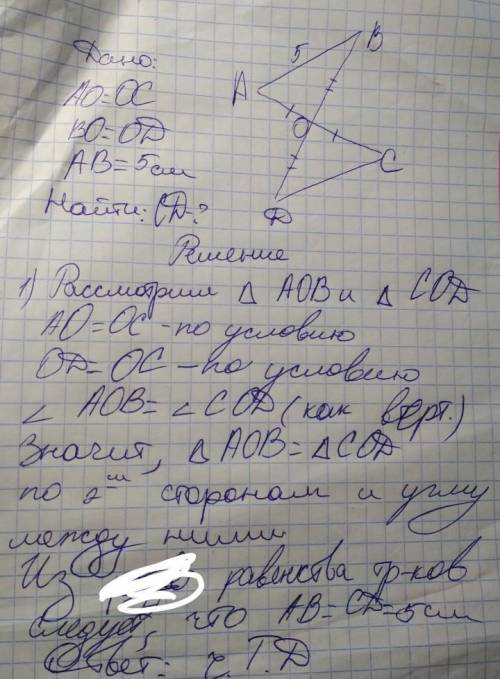 Дано:
AO=OC
BO=OD
AB=5см
Найти: CD-?
5
B
A
O
C
D
Решение
1) Рассмотрим Δ AOB и Δ COD
AO=OC - по условию
OD=OC - по условию
∠ AOB = ∠ COD (как верт.)
Значит, Δ AOB = Δ COD
по 2ᵐ сторонам и углу
между ними
Из равенства тр-ков
следует, что AB=CD=5см
Ответ: ч.т.д